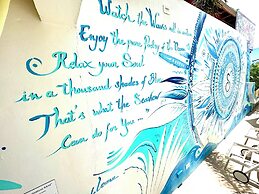 Watch the Waves all in motion
Enjoy the pure Poetry of the Ocean
Relax your Soul
in a thousand shades of Blue
That's what the Seaview
Can do for You